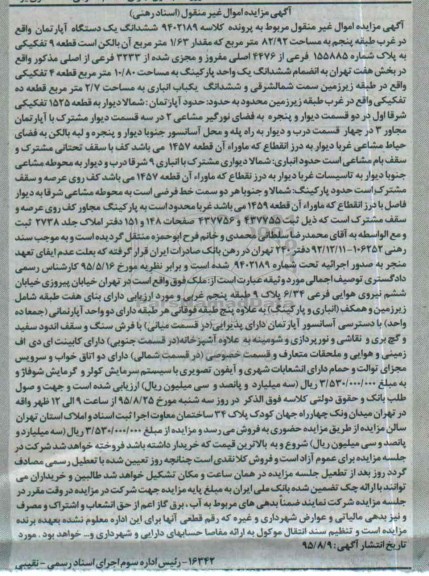 آگهی مزایده اموال غیر منقول (اسناد رهنی)
آگهی مزایده اموال غیر منقول مربوط به پرونده کلاسه ۹۴۰۲۱۸۹ ششدانگ یک دستگاه آپارتمان واقع
در غرب طبقه پنجم به مساحت ۸۲/۹۲ متر مربع که مقدار ۱/۶۳ متر مربع آن بالکن است قطعه ۹ تفکیکی
به پلاک شماره ۱۵۵۸۸۵ فرعی از ۴۴۷۶ اصلی مفروز و مجزی شده از ۳۲۳۳ فرعی از اصلی مذکور واقع
در بخش هفت تهران به انضمام ششدانگ یک واحد پارکینگ به مساحت ۱۰/۸۰ متر مربع قطعه ۴ تفکیکی
واقع در طبقه زیرزمین سمت شمالشرقی و ششدانگ یکباب انباری به مساحت ۲/۷ متر مربع قطعه ده
تفکیکی واقع در غرب طبقه زیرزمین محدود به حدود: حدود آپارتمان: شمالا دیوار به قطعه ۱۵۲۵ تفکیکی
شرقا اول در دو قسمت دیوار و پنجره به فضای نورگیر مشاعی ۲ در سه قسمت دیوار مشترک با آپارتمان
مجاور ۳ در چهار قسمت درب و دیوار به راه پله و محل آسانسور جنوبا دیوار و پنجره و لبه بالکن به فضای
حیاط مشاعی غربا دیوار به درز انقطاع که ماوراء آن قطعه ۱۴۵۷ می باشد کف با سقف تحتانی مشترک و
سقف بام مشاعی است حدود انباری: شمالا دیواری مشترک با انباری ۹ شرقا درب و دیوار به محوطه مشاعی
جنوبا دیوار به تاسیسات غربا دیوار به درز نقطاع که ماوراء آن قطعه ۱۴۵۷ می باشد کف روی عرصه و سقف
مشترک است حدود پارکینگ: شمالا و جنوبا هر دو سمت خط فرضی است به محوطه مشاعی شرقا به دیوار
فاصل با درز انقطاع که ماوراء آن قطعه ۱۴۵۹ می باشد غربا محدود است به پارکینگ مجاور کف روی عرصه و
سقف مشترک است که ذیل ثبت ۴۳۷۷۵۵ و ۴۳۷۷۵۶ صفحات ۱۴۸ و ۱۵۱ دفتر املاک جلد ۲۷۳۸ ثبت
و مع الواسطه به آقای محمدرضا سلطانی محمدی و خانم فرح ابوحمزه منتقل گردیده است و به موجب سند
رهنی ۱۰۶۲۵۲-۹۲/۱۲/۱۱ دفتر ۲۴۰ تهران در رهن بانک صادرات ایران قرار گرفته که بعلت عدم ایفای تعهد
منجر به صدور اجرائیه تحت شماره ۹۴۰۲۱۸۹ شده است و برابر نظریه مورخ ۹۵/۵/۱۶ کارشناس رسمی
دادگستری توصیف اجمالی مورد وثیقه عبارت است از: ملک فوق واقع است در تهران خیابان پیروزی خیابان
ششم نیروی هوایی فرعی ۶/۳۴ پلاک ۹ طبقه پنجم غربی و مورد ارزیابی دارای بنای هفت طبقه شامل
زیرزمین و همکف (انباری و پارکینگ) به علاوه پنج طبقه فوقانی هر طبقه دارای دو واحد آپارتمانی (جمعا ده
واحد) با دسترسی آسانسور آپارتمان دارای پذیرایی (در قسمت میانی) با فرش سنگ و سقف اندود سفید
و گچ بری و نقاشی و نورپردازی و شومینه به علاوه آشپزخانه (در قسمت جنوبی) دارای کابینت ای دی اف
زمینی و هوایی و ملحقات متعارف و قسمت خصوصی (در قسمت شمالی) دارای دو اتاق خواب و سرویس
مجزای توالت و حمام دارای انشعابات شهری و آیفون تصویری با سیستم سرمایش کولر و گرمایش شوفاژ و
به مبلغ ۳/۵۳۰/۰۰۰/۰۰۰ ریال (سه میلیارد و پانصد و سی میلیون ریال) ارزیابی شده است و جهت و صول
طلب بانک و حقوق دولتی کلاسه فوق الذکر در روز سه شنبه مورخ ۹۵/۸/۲۵ از ساعت ۹ الی ۱۲ ظهر واقع
در تهران میدان ونک چهارراه جهان کودک پلاک ۳۴ ساختمان معاونت اجرا ثبت اسناد و املاک استان تهران
سالن مزایده از طریق مزایده حضوری به فروش می رسد و مزایده از مبلغ ۳/۵۳۰/۰۰۰/۰۰۰ ریال (سه میلیارد و
پانصد و سی میلیون ریال) شروع و به بالاترین قیمت که خریدار داشته باشد فروخته خواهد شد شرکت در
جلسه مزایده برای عموم آزاد است و فروش کلا نقدی است چنانچه روز تعیین شده با تعطیل رسمی مصادف
گردد روز بعد از تعطیل جلسه مزایده در همان ساعت و مکان تشکیل خواهد شد طالبین و خریداران می
توانند با ارائه چک تضمین شده بانک ملی ایران به مبلغ پایه مزایده جهت شرکت در مزایده در وقت مقرر در
جلسه مزایده شرکت نمایند ضمنا بدهی های مربوط به آب، برق گاز اعم از حق انشعاب و اشتراک و مصرف
و نیز بدهی مالیاتی و عوارض شهرداری و غیره که رقم قطعی آنها برای این اداره معلوم نشده بعهده برنده
مزایده است و تنظیم سند انتقال موکول به ارائه مفاصا حسابهای دارایی و شهرداری و... خواهد بود. مورد
تاریخ انتشار آگهی: ۹۵/۸/۹
۱۶۳۴۲- رئیس اداره سوم اجرای اسناد رسمی - نقیبی